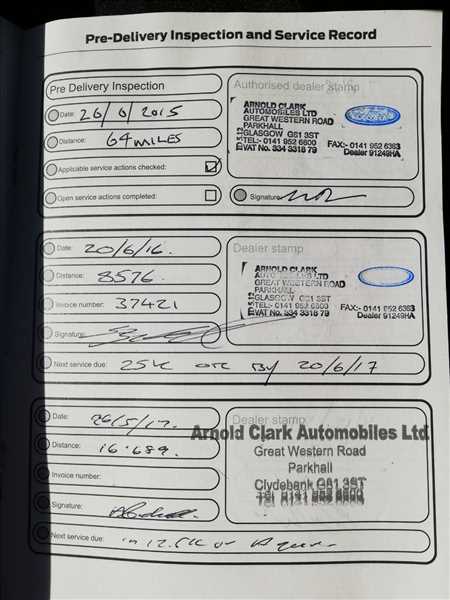 Pre-Delivery Inspection and Service Record
Pre Delivery Inspection
Date: 26/6/2015
Distance: 64 MILES
Applicable service actions checked:
Open service actions completed:
Authorised dealer stamp
ARNOLD CLARK
AUTOMOBILES LTD
GREAT WESTERN ROAD
PARKHALL
GLASGOW G81 3ST
TEL:- 0141 952 6600 FAX:- 0141 952 6363
VAT No. 334 3318 79 Dealer 91249HA
Signature:
Date: 20/6/16.
Distance: 8576
Invoice number: 37421
Signature:
Dealer stamp
ARNOLD CLARK
AUTOMOBILES LTD
GREAT WESTERN ROAD
PARKHALL
GLASGOW G81 3ST
TEL:- 0141 952 6600 FAX:- 0141 952 6363
VAT No. 334 3318 79 Dealer 91249HA
Next service due: 25K OR By 20/6/17
Date: 26/5/17.
Distance: 16'689
Invoice number:
Signature:
Dealer stamp
Arnold Clark Automobiles Ltd
Great Western Road
Parkhall
Clydebank G81 3ST
Tel 0141 952 6600
Next service due: in 12.5K or